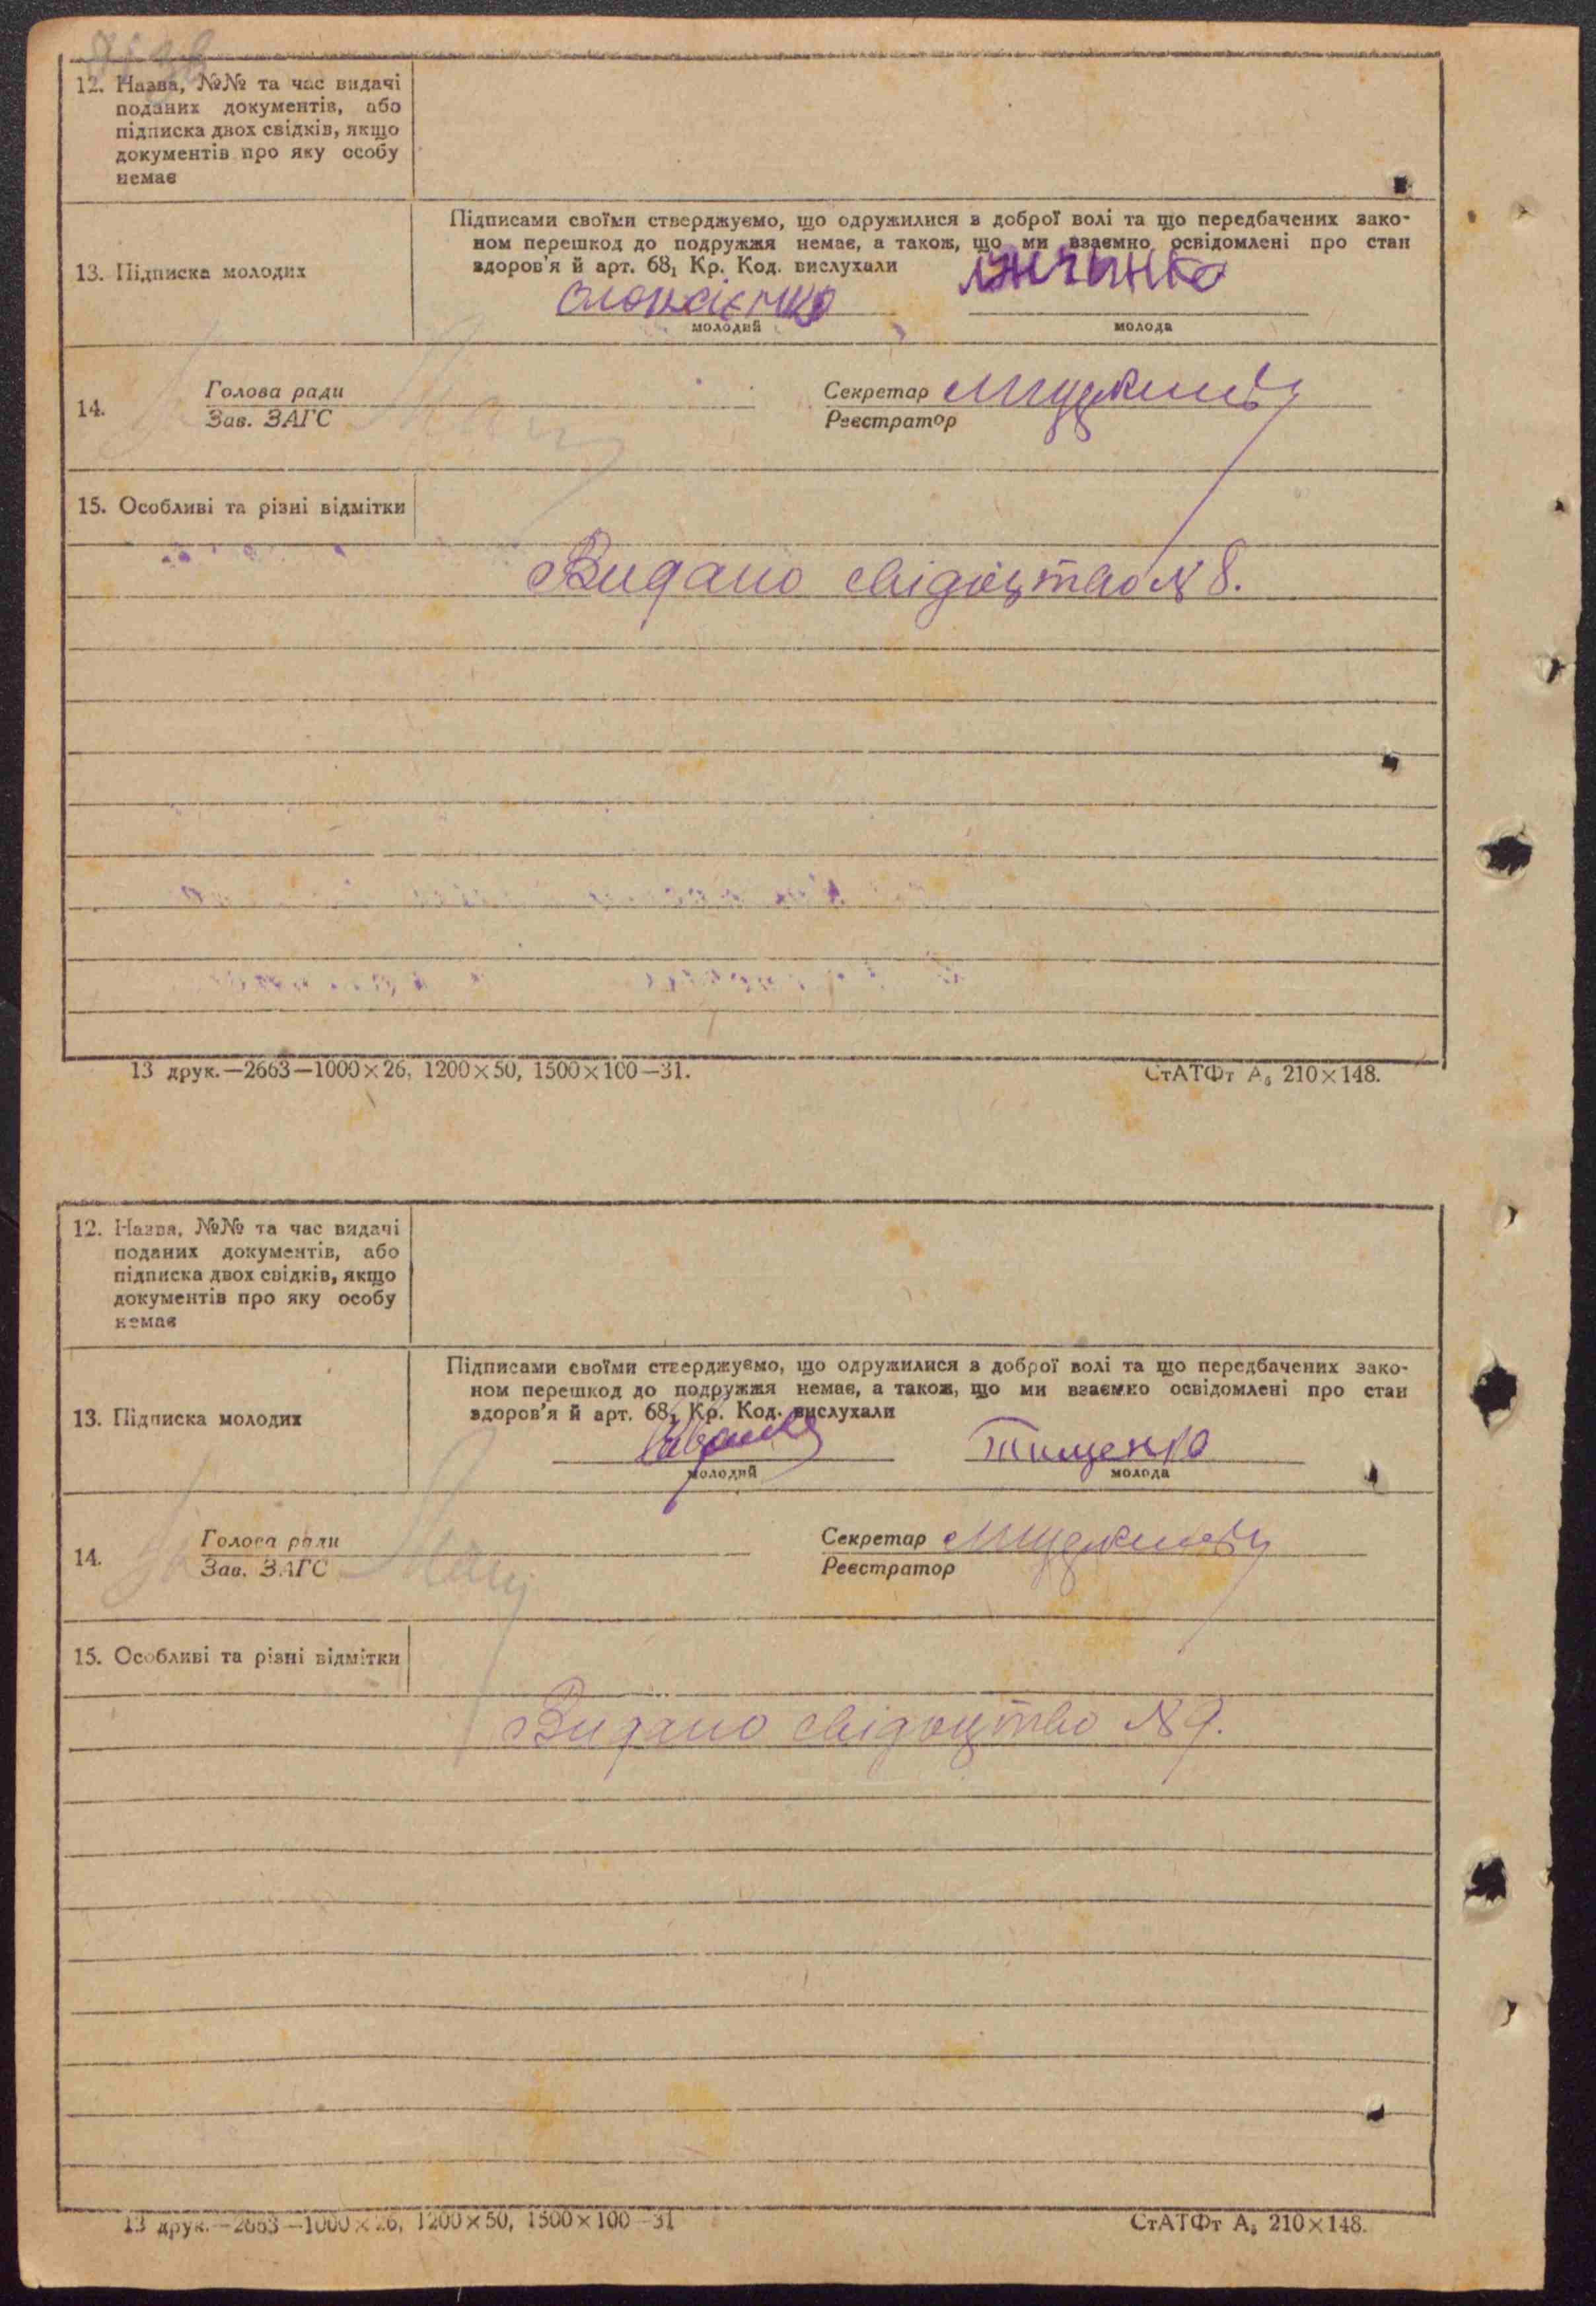 12. Назва, №№ та час видачі
поданих документів, або
підписка двох свідків, якщо
документів про яку особу
немає
13. Підписка молодих
Підписами своїми стверджуємо, що одружилися з доброї волі та що передбачених зако-
ном перешкод до подружжя немає, а також, що ми взаємно освідомлені про стан
здоров'я й арт. 68, Кр. Код. вислухали
молодий
молода
14.
Голова ради
Зав. ЗАГС
Секретар
Реєстратор
15. Особливі та різні відмітки
Видано свідоцтво № 8.
13 друк.—2663—1000×26, 1200×50, 1500×100—31.
СтАТФт А₅ 210×148.
12. Назва, №№ та час видачі
поданих документів, або
підписка двох свідків, якщо
документів про яку особу
немає
13. Підписка молодих
Підписами своїми стверджуємо, що одружилися з доброї волі та що передбачених зако-
ном перешкод до подружжя немає, а також, що ми взаємно освідомлені про стан
здоров'я й арт. 68, Кр. Код. вислухали
Тищенко
молодий
молода
14.
Голова ради
Зав. ЗАГС
Секретар
Реєстратор
15. Особливі та різні відмітки
Видано свідоцтво № 9.
13 друк.—2663—1000×26, 1200×50, 1500×100—31
СтАТФт А₅ 210×148.